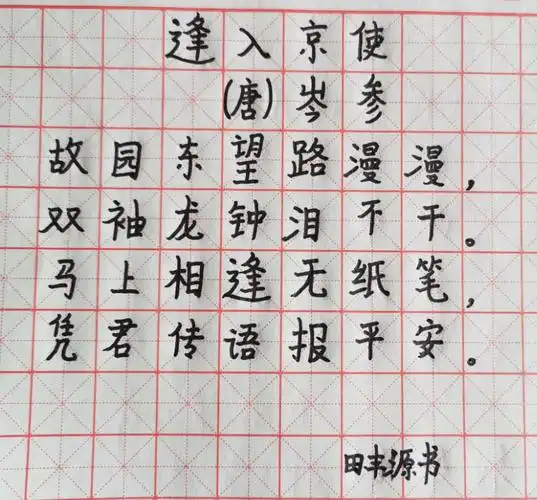 逢入京使
(唐)岑参
故园东望路漫漫，
双袖龙钟泪不干。
马上相逢无纸笔，
凭君传语报平安。
田丰源书